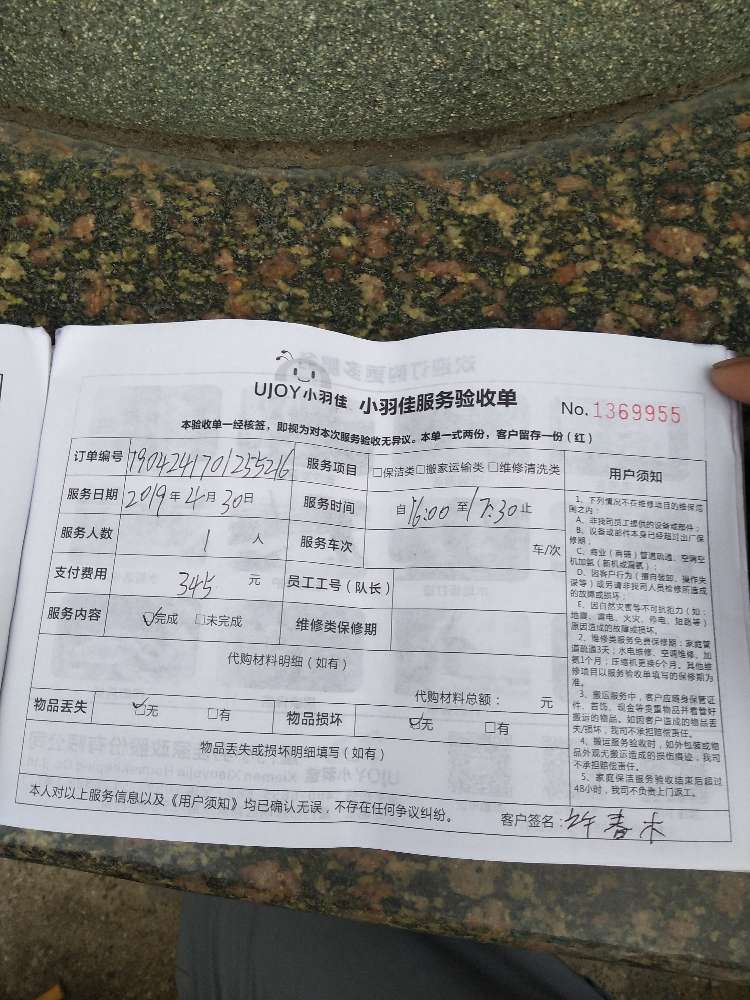 UJOY小羽佳 小羽佳服务验收单 No.1369955
本验收单一经核签，即视为对本次服务验收无异议。本单一式两份，客户留存一份（红）
订单编号 服务项目 □保洁类□搬家运输类□维修清洗类
服务日期 2019年4月30日 服务时间 自16:00至17:30止
服务人数 1 人 服务车次 车/次
支付费用 345 元 员工工号（队长）
服务内容 ☑完成 □未完成 维修类保修期
代购材料明细（如有）
代购材料总额： 元
物品丢失 ☑无 □有 物品损坏 ☑无 □有
物品丢失或损坏明细填写（如有）
本人对以上服务信息以及《用户须知》均已确认无误，不存在任何争议纠纷。 客户签名：春木
用户须知
1、下列情况不在维修项目的维保范
围之内：
A、非我司员工提供的设备或部件；
B、设备或部件本身已经超过出厂保
修期；
C、商业（商铺）管道疏通、空调空
机加氨（新机或漏氨）；
D、因客户行为（擅自装卸、操作失
误等）或另请非我司人员检修所造成
的故障或损坏；
E、因自然灾害等不可抗拒力（如：
地震、雷电、火灾、停电、短路等）
原因造成的故障或损坏。
2、维修类服务免费保修期：家庭管
道疏通3天；水电维修、空调维修、加
氨1个月；压缩机更换6个月。其他维
修项目以服务验收单填写的保修期为
准。
3、搬运服务中，客户应随身保管证
件、首饰、现金等贵重物品并看管好
搬运的物品。如因客户造成的物品丢
失/损坏，我司不承担赔偿责任。
4、搬运服务验收时，如外包装或物
品外观无搬运造成的损伤痕迹，我司
不承担赔偿责任。
5、家庭保洁服务验收结束后超过
48小时，我司不负责上门返工。